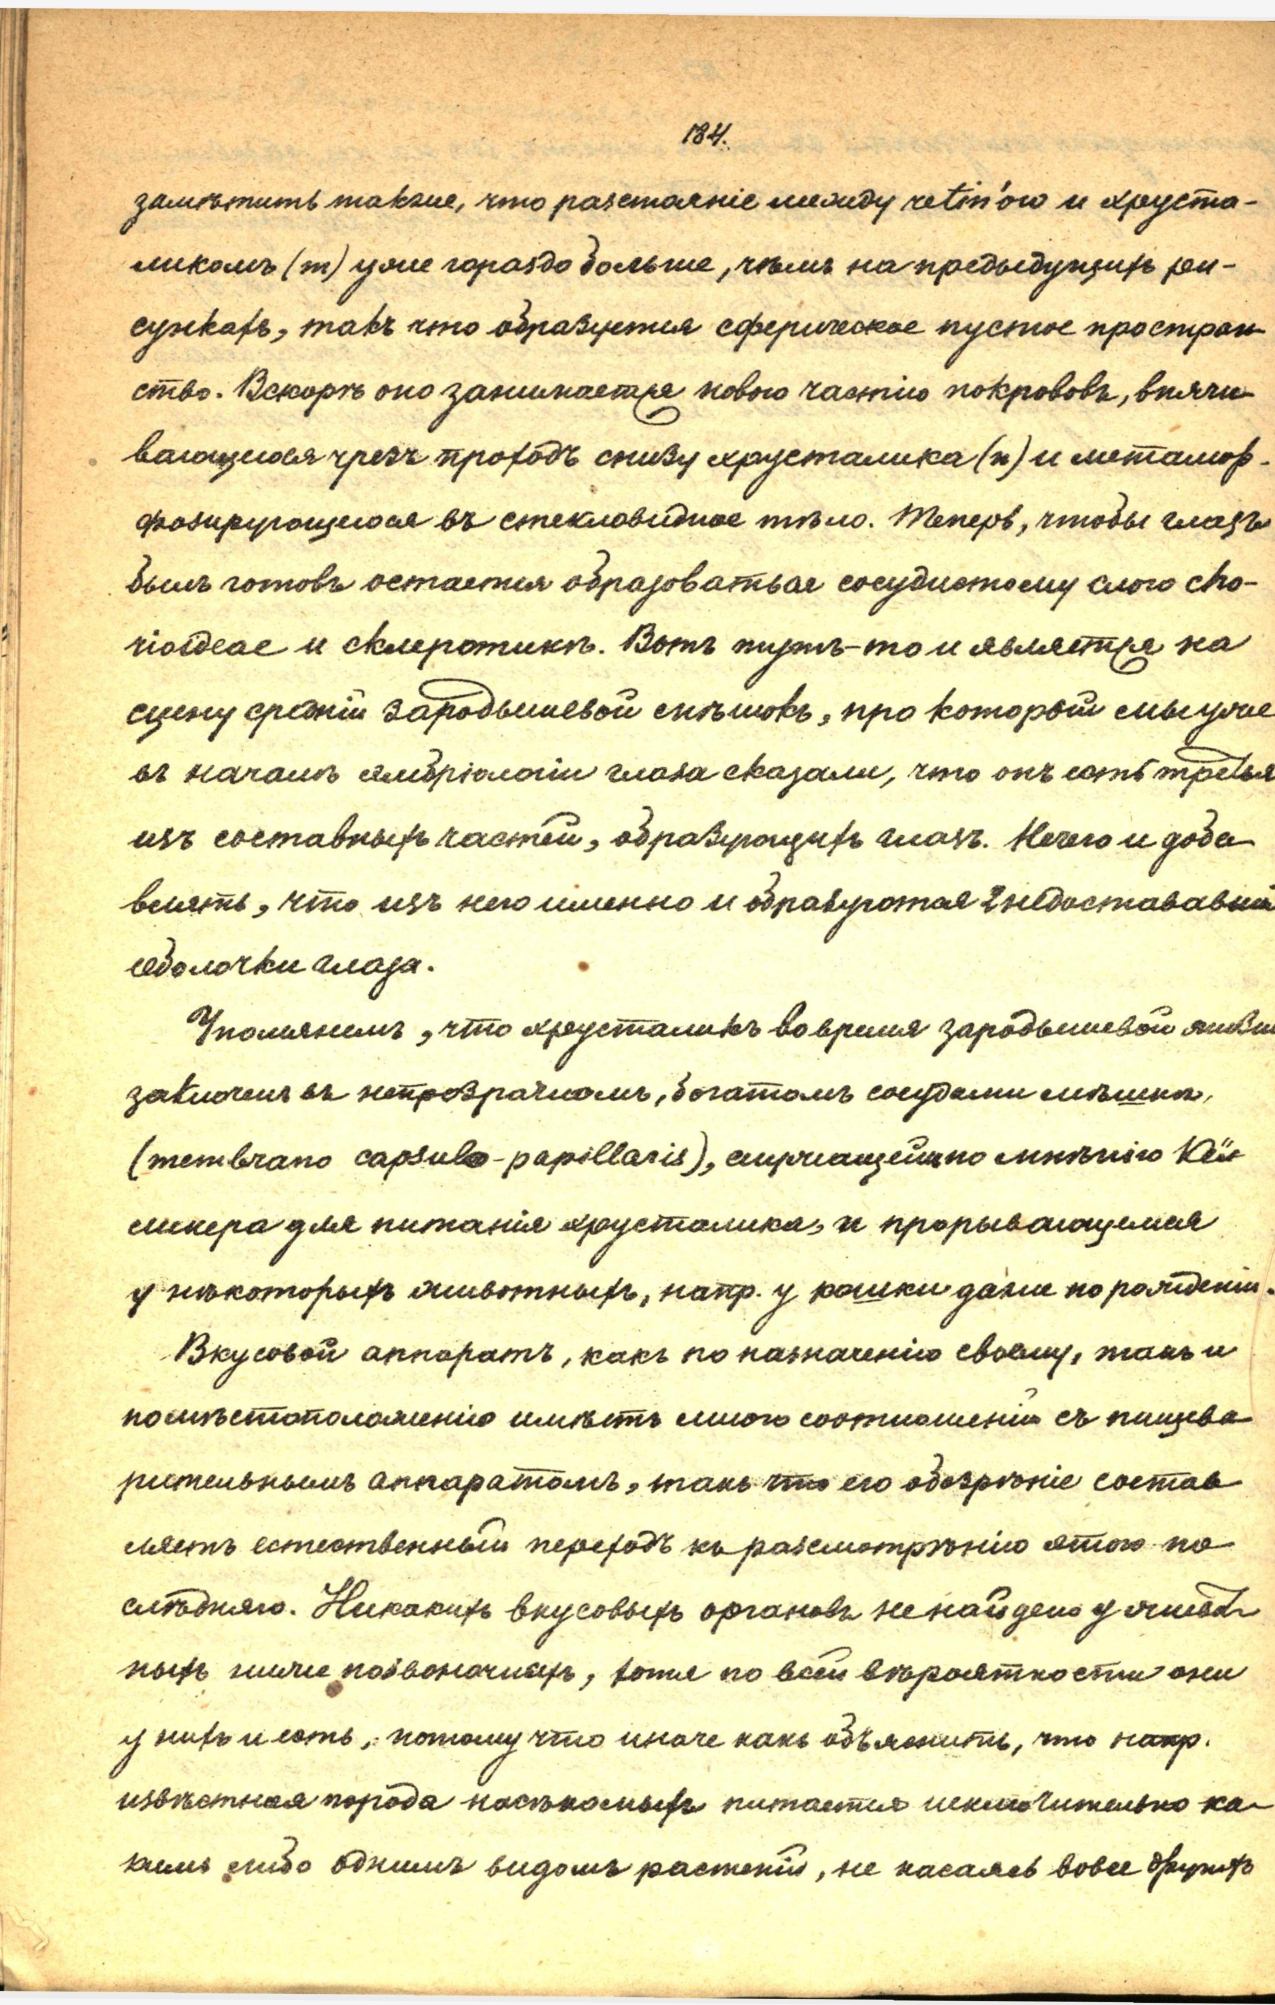 184.
замѣтить также, что разстояніе между retin'ою и хруста-
ликомъ (m) уже гораздо больше, чѣмъ на предыдущихъ ри-
сункахъ, такъ что образуется сферическое пустое простран
ство. Вскорѣ оно занимается новою частію покрововъ, впячи
вающеюся чрезъ проходъ снизу хрусталика (n) и метамор-
фозирующеюся въ стекловидное тѣло. Теперь, чтобы глазъ
былъ готовъ остается образоваться сосудистому слою cho-
rioideae и склеротикѣ. Вотъ тутъ-то и является на
сцену средній зародышевой мѣшокъ, про который мы уже
въ началѣ эмбріологіи глаза сказали, что онъ есть третья
изъ составныхъ частей, образующихъ глазъ. Нечего и доба
влять, что изъ него именно и образуются 2 недостававшія
оболочки глаза.
Упомянемъ, что хрусталикъ во время зародышевой жизни
заключенъ въ непрозрачномъ, богатомъ сосудами мѣшкѣ,
(membrano capsulo-papillaris), служащей по мнѣнію Кёл
ликера для питанія хрусталика, и прорывающемся
у нѣкоторыхъ животныхъ, напр. у кошки даже по рожденіи.
Вкусовой аппаратъ, какъ по назначенію своему, такъ и
по мѣстоположенію имѣетъ много соотношеній съ пищева
рительнымъ аппаратомъ, такъ что его обозрѣніе состав
ляетъ естественный переходъ къ разсмотрѣнію этого по
слѣдняго. Никакихъ вкусовыхъ органовъ не найдено у живот
ныхъ ниже позвоночныхъ, хотя по всей вѣроятности они
у нихъ и есть, потому что иначе какъ объяснить, что напр.
извѣстная порода насѣкомыхъ питается исключительно ка-
кимъ либо однимъ видомъ растеній, не касаясь вовсе другихъ